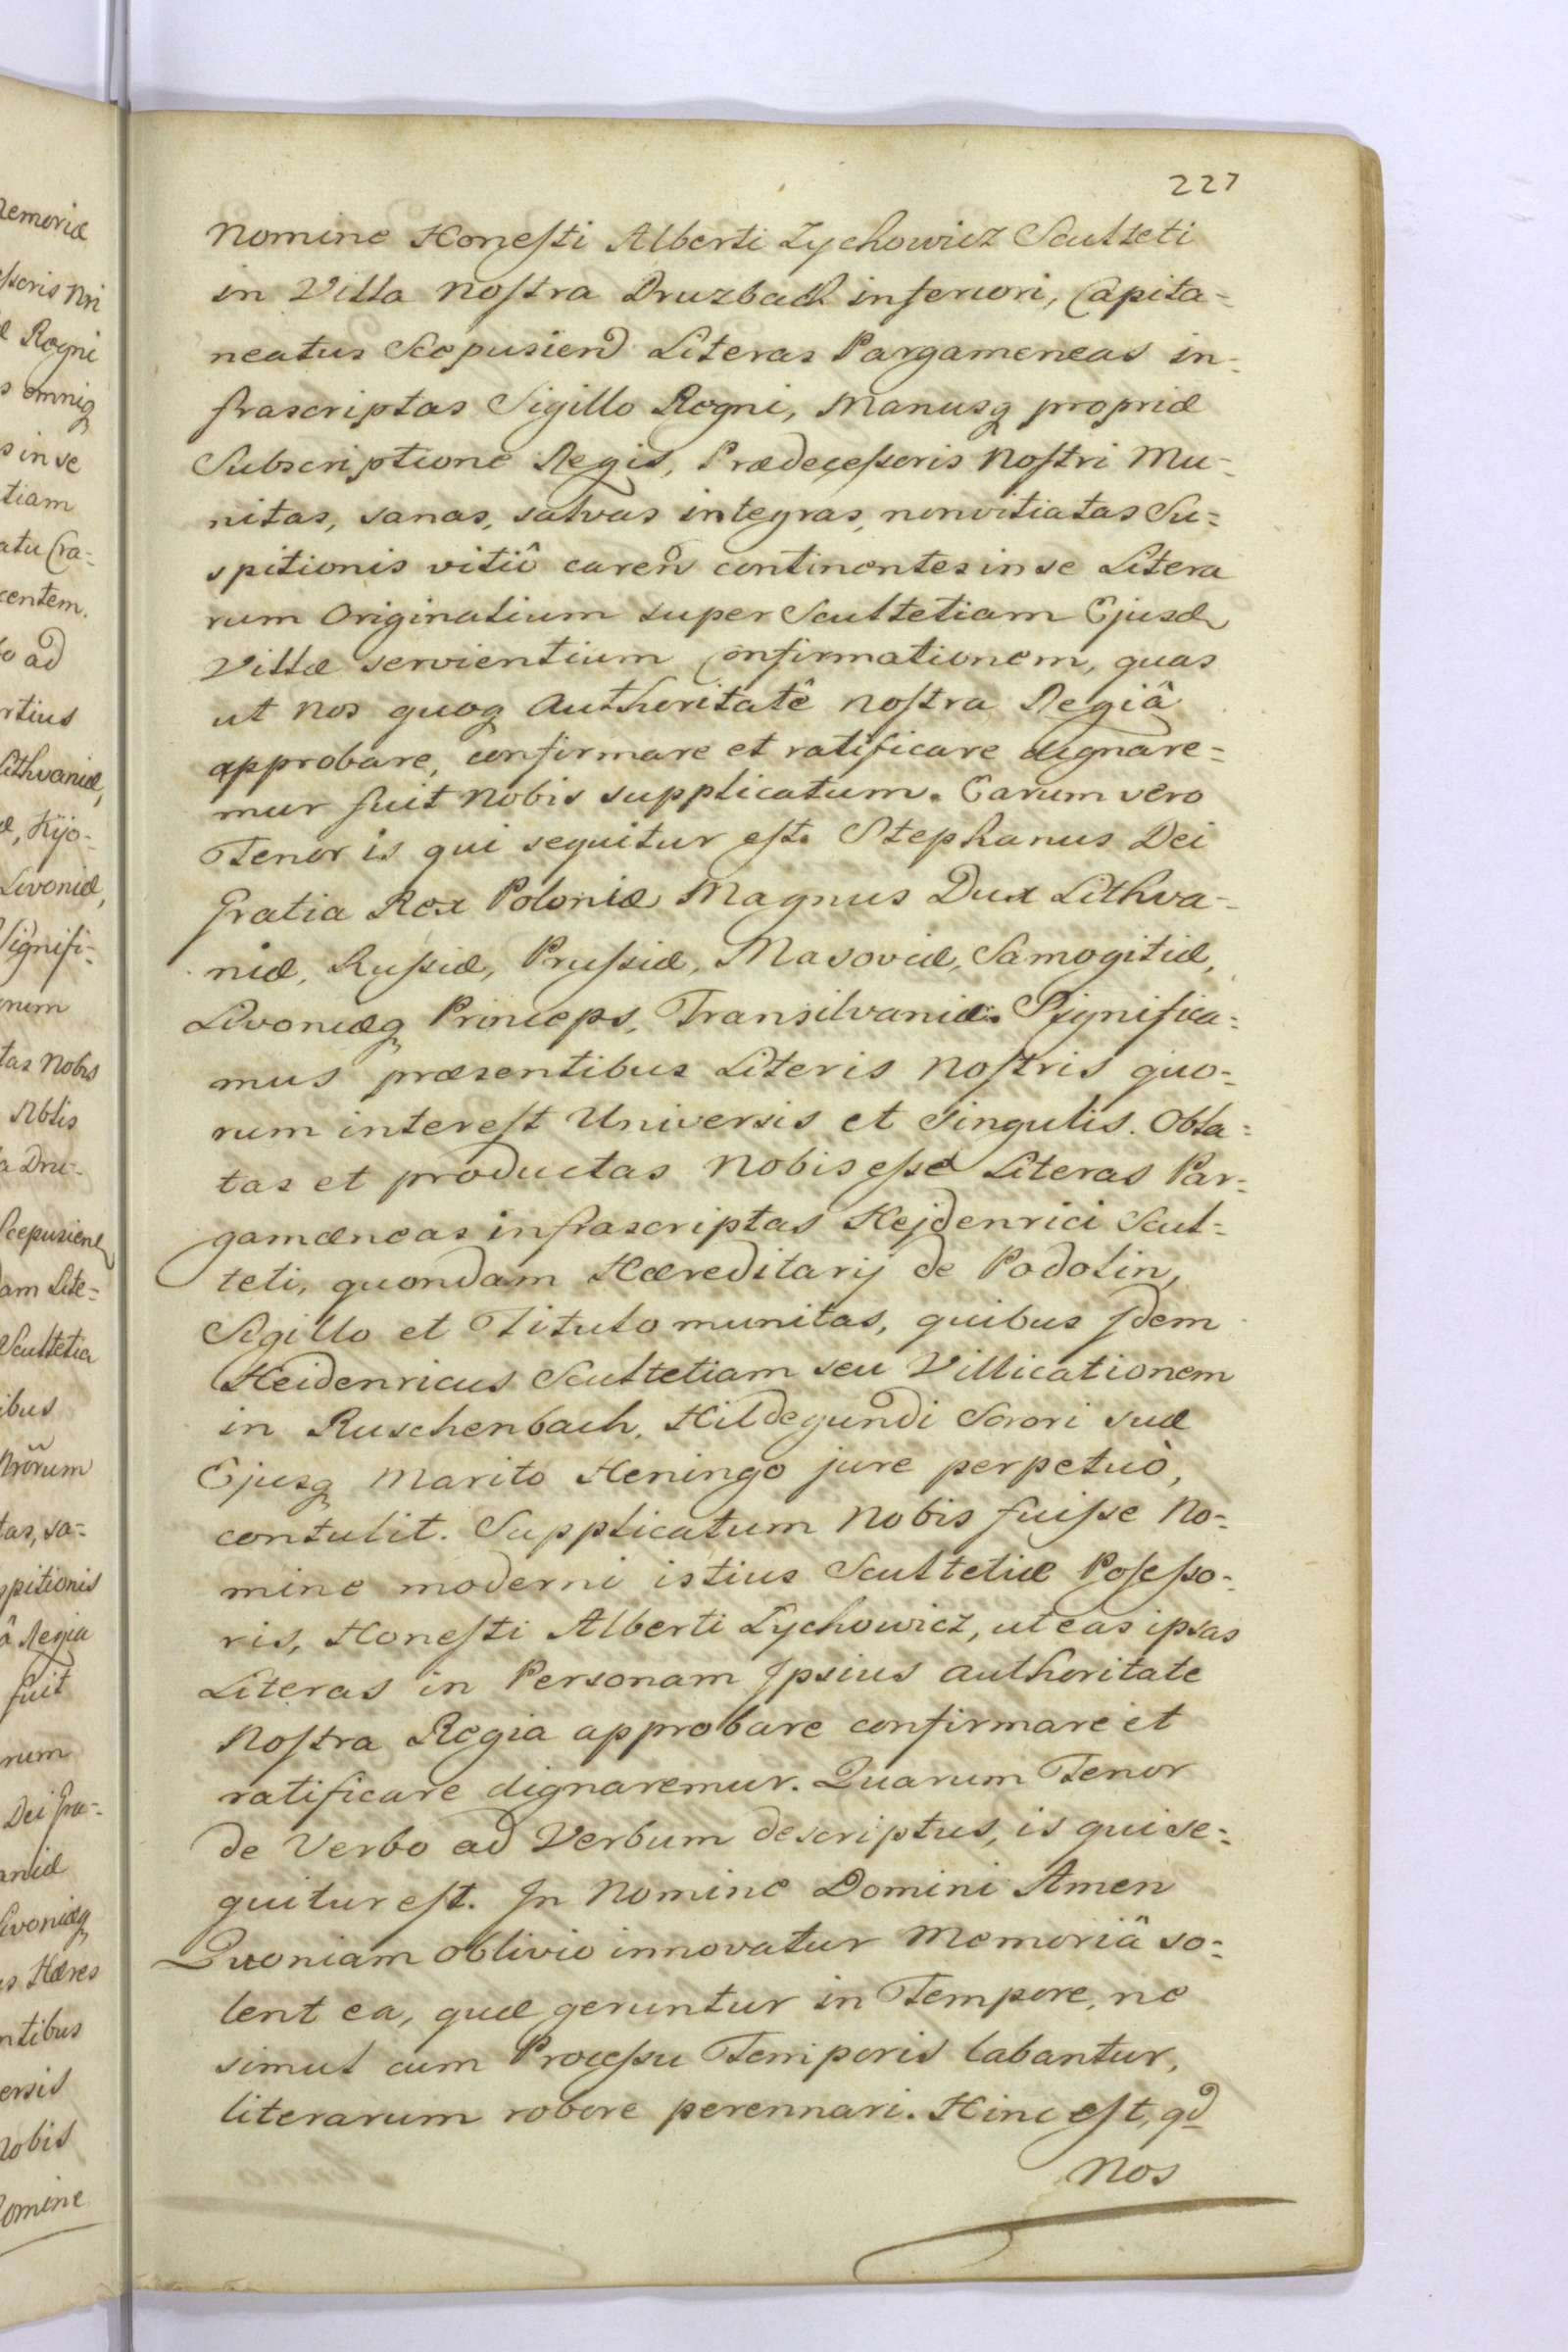 227
Nomine Honesti Alberti Zychowicz Sculteti
in Villa nostra Druzbach inferiori, Capita-
neatus Scepusien Literas Pargameneas in-
frascriptas Sigillo Regni, Manusq propriæ
Subscriptione Regis, Prædecessoris Nostri Mu-
nitas, sanas, salvas integras, nonvitiatas Su-
spitionis vitiô caren continentes in se Litera
rum Originalium super Scultetiam Ejusd
Villæ servientium Confirmationem, quas
ut nos quoq Authoritatê nostra Regiâ
approbare, confirmare et ratificare dignare-
mur fuit Nobis supplicatum. Earum vero
Tenor is qui sequitur est. Stephanus Dei
Gratia Rex Poloniæ Magnus Dux Lithva-
niæ, Russiæ, Prussiæ, Masoviæ, Samogitiæ,
Livoniæq Princeps, Transilvaniæ. Significa-
mus præsentibus Literis Nostris quo-
rum interest Universis et Singulis. Obla-
tas et productas Nobis esse Literas Par-
gamæneas infrascriptas Hejdenrici Scul-
teti, quondam Hæreditarij de Podolin,
Sigillo et Titulo munitas, quibus Idem
Heidenricus Scultetiam seu Villicationem
in Ruschenbach, Hildegundi Sorori suæ
Ejusq Marito Heningo jure perpetuò,
contulit. Supplicatum Nobis fuisse No-
mine moderni istius Scultetiæ Possesso-
ris, Honesti Alberti Zychowicz, ut eas ipsas
Literas in Personam Ipsius authoritate
Nostra Regia approbare confirmare et
ratificare dignaremur. Quarum Tenor
de Verbo ad Verbum descriptus, is qui se-
quitur est. In Nomine Domini Amen
Quoniam oblivio innovatur Memoriâ so-
lent ea, quæ geruntur in Tempore, ne
simul cum Processu Temporis labantur,
literarum robore perennari. Hinc est, qd
Nos